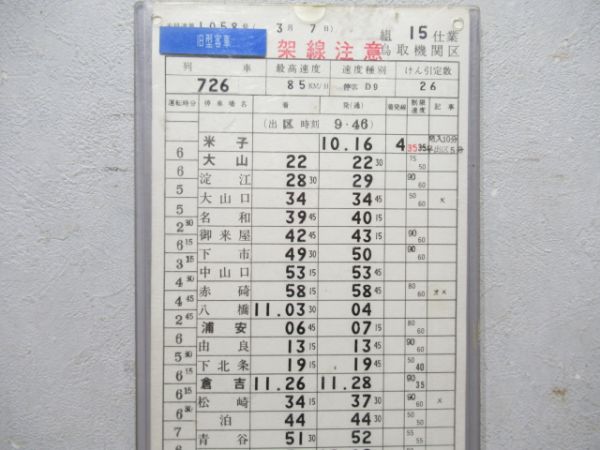 1058 3月 7日)
旧型客車 架線注意 組 15仕業
鳥取機関区
列 車 最高速度 速度種別 けん引定数
726 85KM/H 停客 D9 26
運転時分 停車場名 着 発(通) 着発線 制限速度 記事
(出区時刻 9・46)
米子 10.16 4 35 35
6
大山 22 22 30 75 50
6
淀江 28 30 29 90 60
5
大山口 34 34 45 50 60 ×
5
名和 39 45 40 15
2 30
御来屋 42 45 43 15 90 60
6 15
下市 49 30 50 90 60
3 15
中山口 53 15 53 45
4 30
赤碕 58 15 58 45 80 60
4 45
八橋 11.03 30 04
2 45
浦安 06 45 07 15 80 60
6
由良 13 15 13 45 90 60
5 30
下北条 19 15 19 45 50 40
6 15
倉吉 11.26 11.28 90 35
6 15
松崎 34 15 37 30 90 60 ×
6 30
泊 44 44 30 50
7
青谷 51 30 52 55 55
8